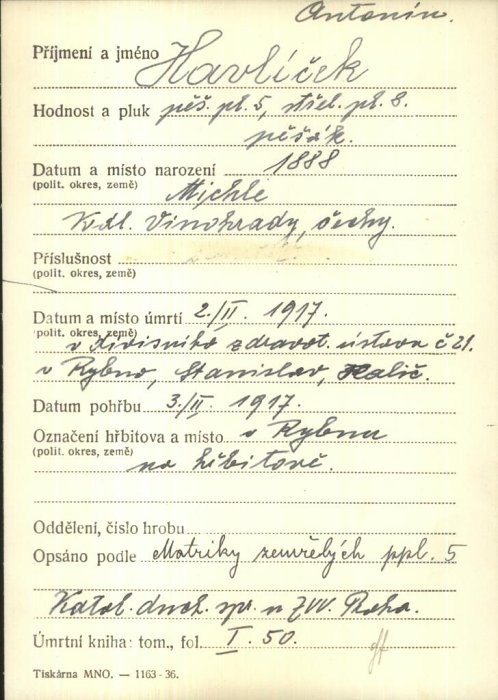 Antonín.
Příjmení a jméno Havlíček
Hodnost a pluk pěš. pl. 5, střel. pl. 8.
pěšák.
Datum a místo narození 1888
(polit. okres, země) Michle
Král. Vinohrady, Čechy.
Příslušnost
(polit. okres, země)
Datum a místo úmrtí 2./II. 1917.
(polit. okres, země)
v Divisního zdravot. ústavu č 21.
v Rybno, Stanislav, Halič.
Datum pohřbu 3./II. 1917.
Označení hřbitova a místo v Rybnu
(polit. okres, země)
na hřbitově.
Oddělení, číslo hrobu
Opsáno podle Matriky zemřelých ppl. 5
Katol. duch. spr. u ZVV. Praha.
Úmrtní kniha: tom., fol. I. 50.
Tiskárna MNO. — 1163 - 36.